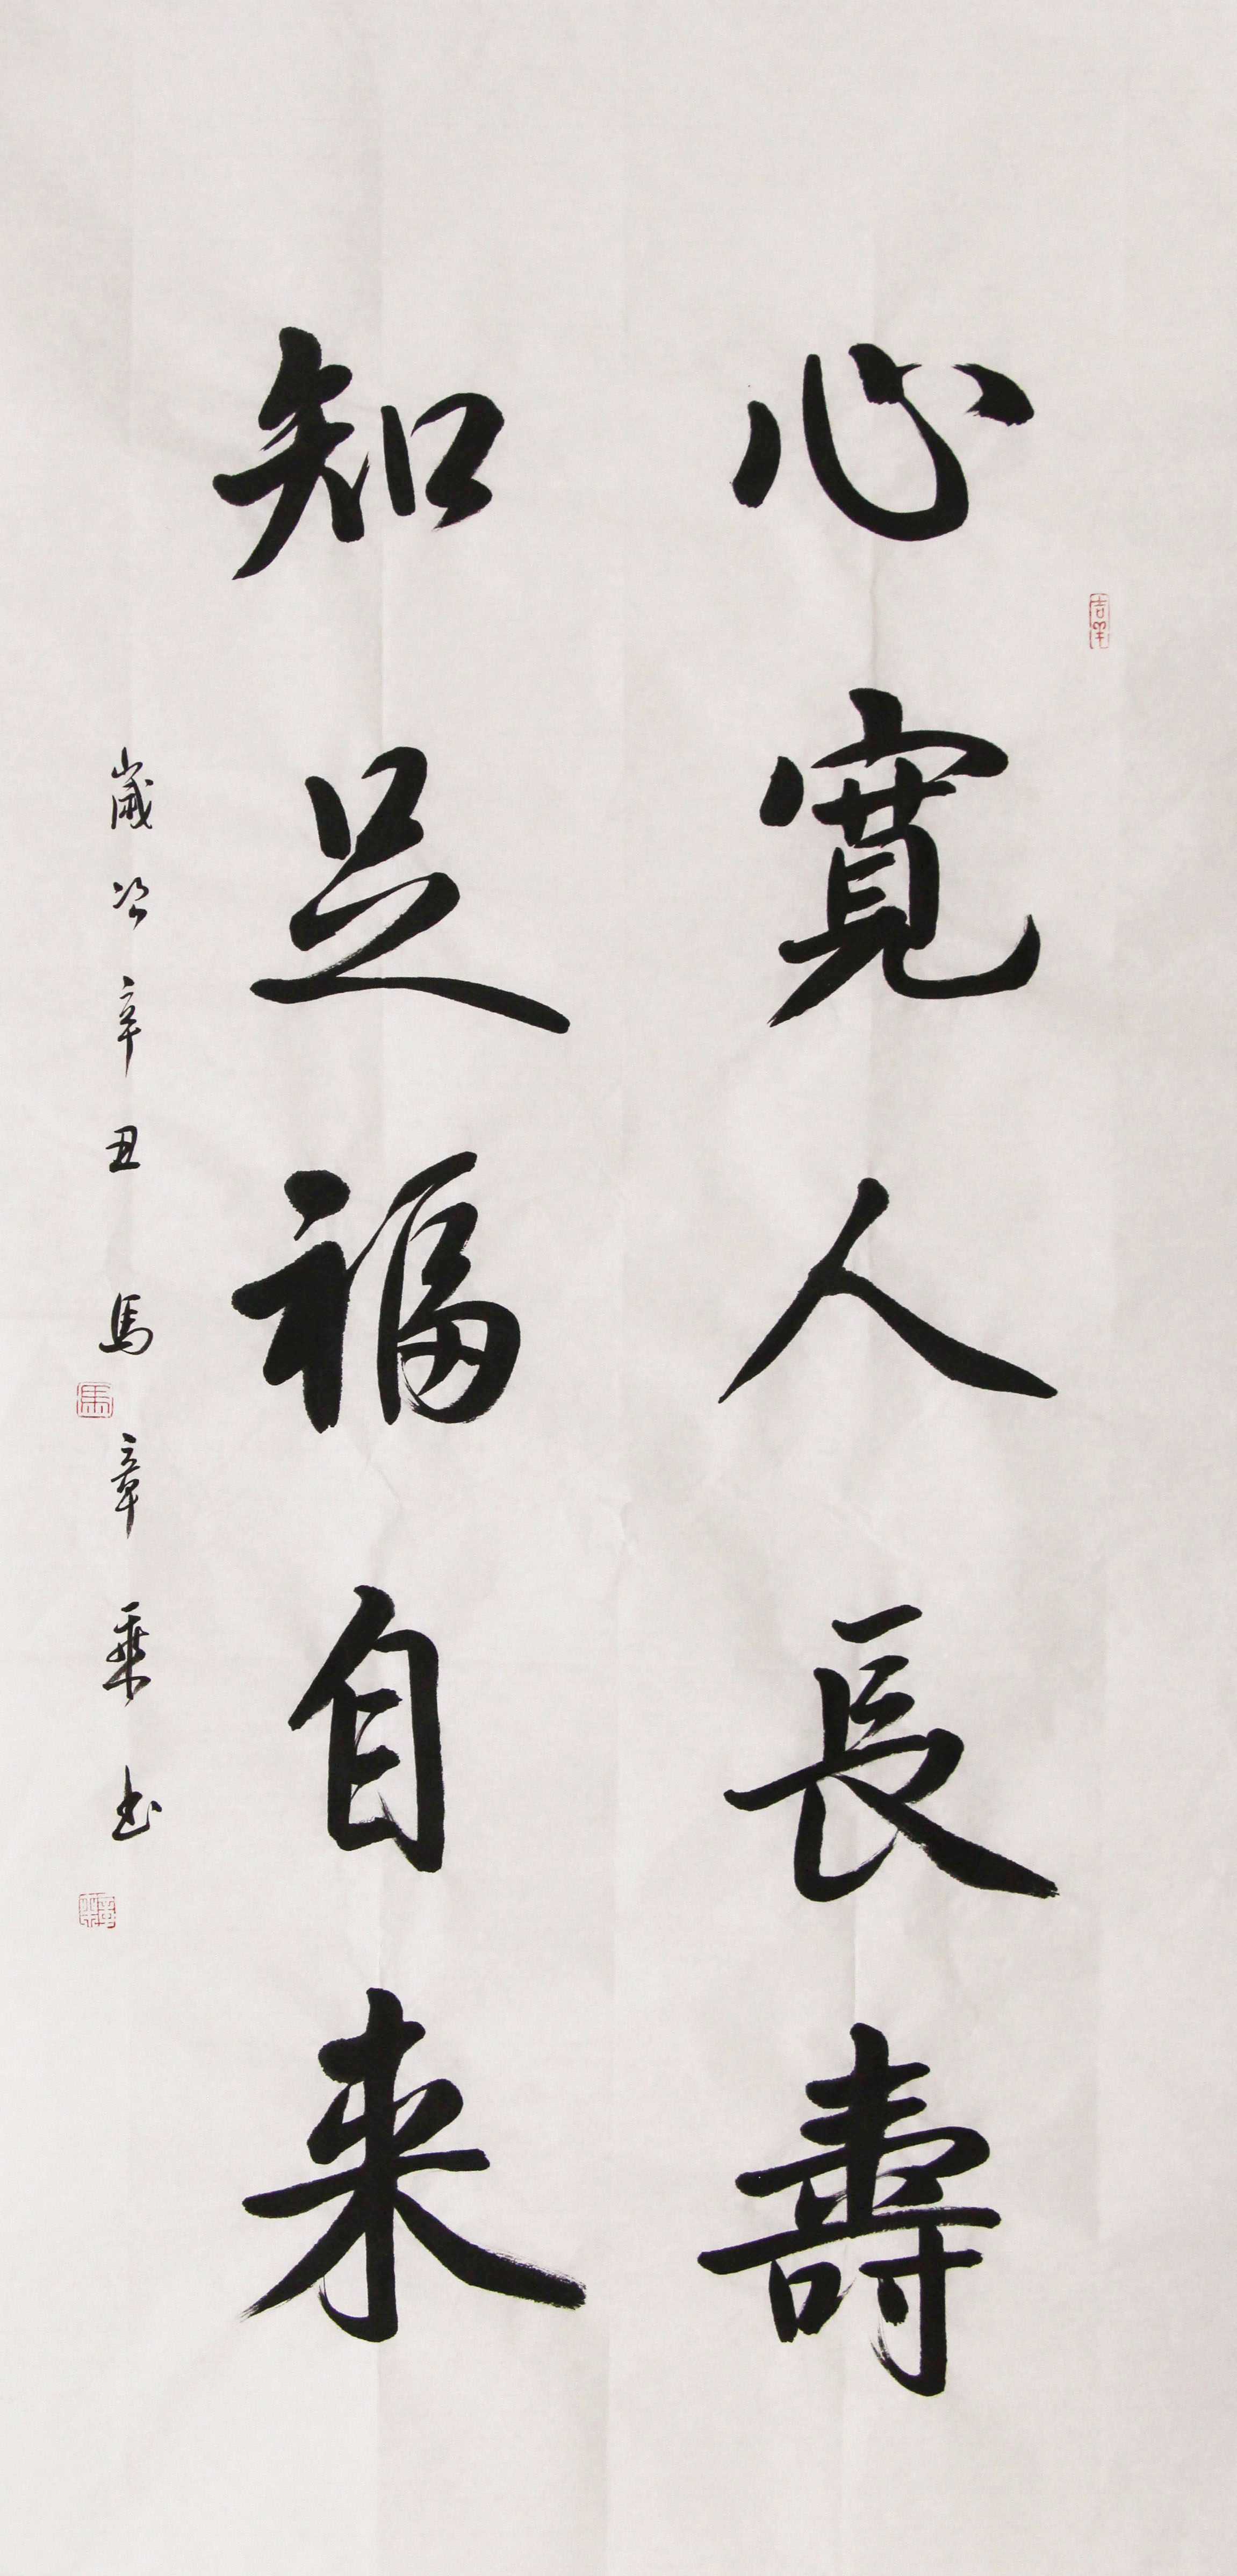 心寬人長壽
知足福自来
吉羊
歲次辛丑馬章乘书
馬